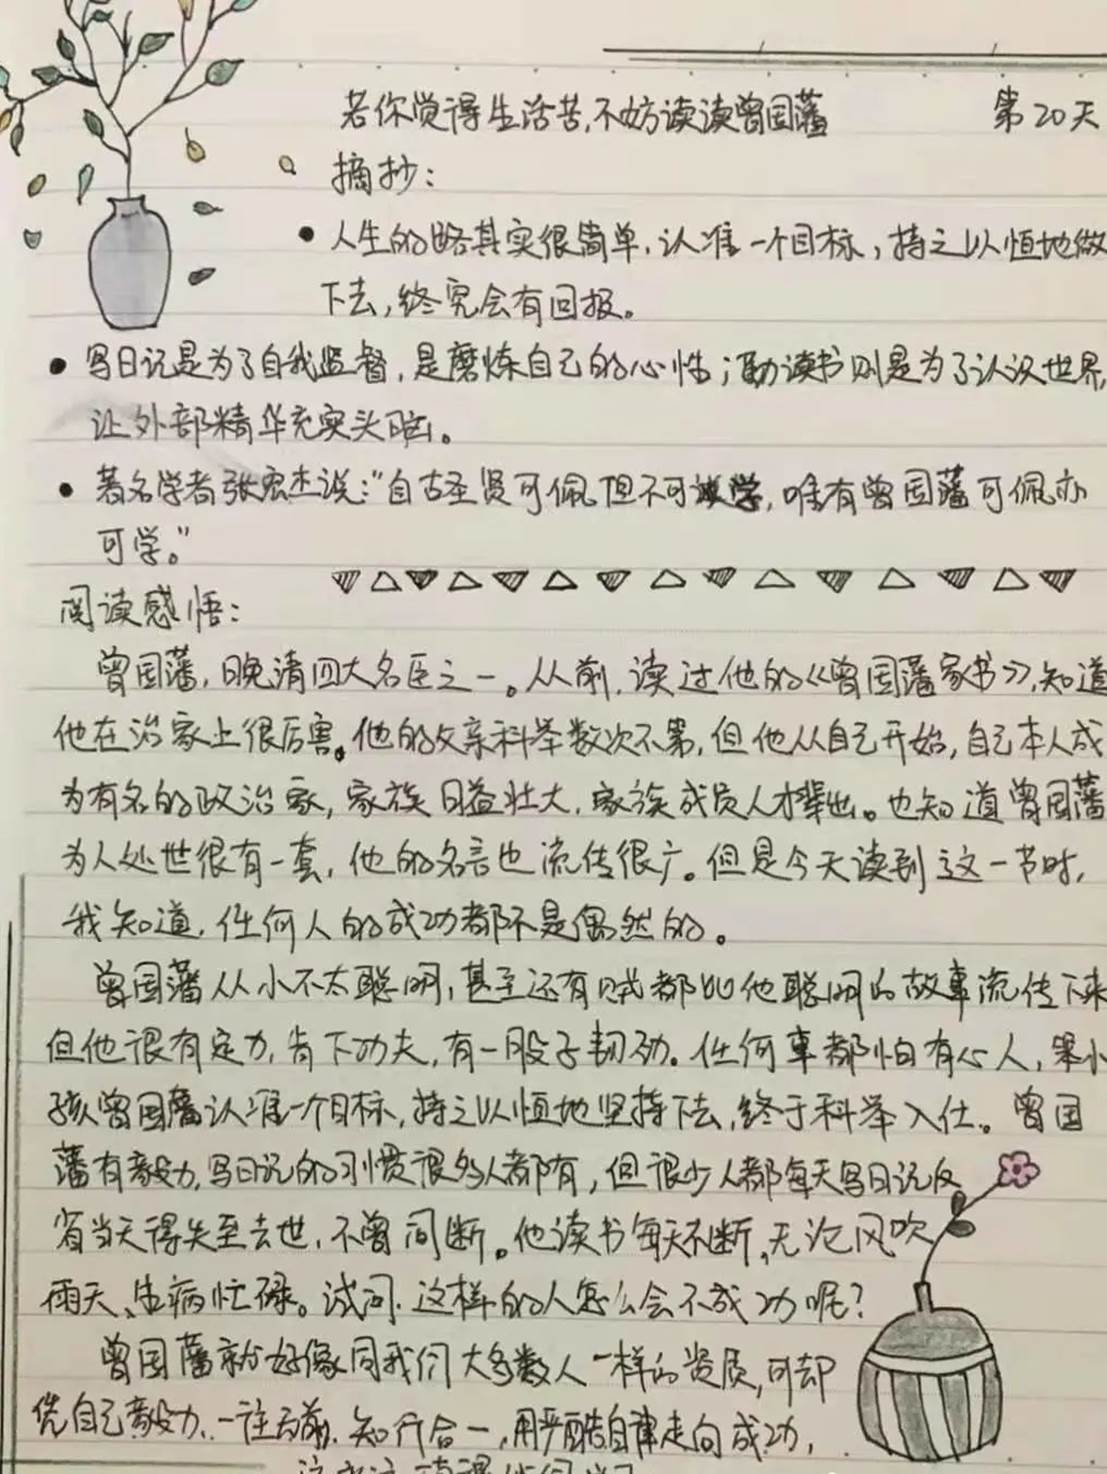 若你觉得生活苦,不妨读读曾国藩 第20天
摘抄:
•人生的路其实很简单,认准一个目标,持之以恒地做
下去,终究会有回报。
•写日记是为了自我监督,是磨炼自己的心性;勤读书则是为了认识世界,
让外部精华充实头脑。
•著名学者张宏杰说:"自古圣贤可佩但不可学,唯有曾国藩可佩亦
可学。"
阅读感悟:
曾国藩,晚清四大名臣之一。从前,读过他的《曾国藩家书》,知道
他在治家上很厉害。他的父亲科举数次不第,但他从自己开始,自己本人成
为有名的政治家,家族日益壮大,家族成员人才辈出。也知道曾国藩
为人处世很有一套,他的名言也流传很广。但是今天读到这一节时,
我知道,任何人的成功都不是偶然的。
曾国藩从小不太聪明,甚至还有贼都比他聪明的故事流传下来
但他很有定力,肯下功夫,有一股子韧劲。任何事都怕有心人,笨小
孩曾国藩认准一个目标,持之以恒地坚持下去,终于科举入仕。曾国
藩有毅力,写日记的习惯很多人都有,但很少人都每天写日记反
省当天得失至去世,不曾间断。他读书每天不断,无论风吹
雨天、生病忙碌。试问,这样的人怎么会不成功呢?
曾国藩就好像同我们大多数人一样的资质,可却
凭自己毅力,一往无前,知行合一,用严酷自律走向成功,